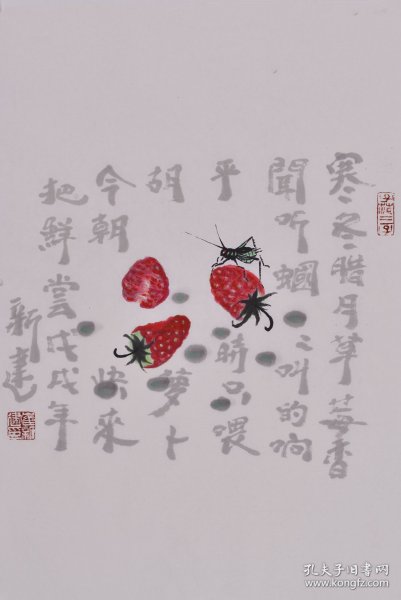 寒冬腊月草莓香
聞听蝈〻叫的响
平時只喂
胡萝卜
今朝快來
把鮮嘗戊戌年
新建
孔夫子旧书网
www.kongfz.com